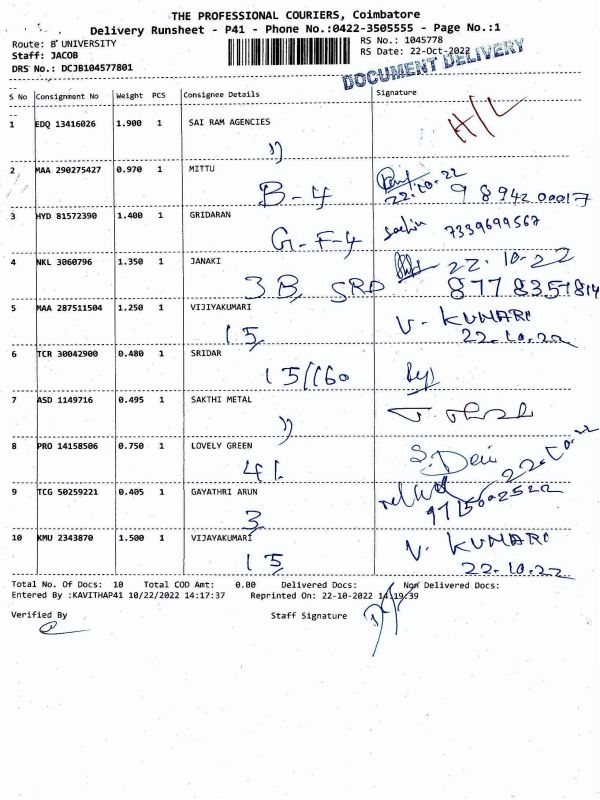 THE PROFESSIONAL COURIERS, Coimbatore
Delivery Runsheet - P41 - Phone No.:0422-3505555 - Page No.:1
Route: B' UNIVERSITY
RS No.: 1045778
Staff: JACOB
RS Date: 22-Oct-2022
DRS No.: DCJB104577801
DOCUMENT DELIVERY
S No Consignment No Weight PCS Consignee Details Signature
1 EDQ 13416026 1.900 1 SAI RAM AGENCIES
H/L
2 MAA 290275427 0.970 1 MITTU
B-4 22.10.22 98942 00017
3 HYD 81572390 1.400 1 GRIDARAN
G-F-4 sachin 7339699567
4 NKL 3060796 1.350 1 JANAKI
22.10-22
3B, SRD 8778351814
5 MAA 287511504 1.250 1 VIJIYAKUMARI
15 V. KUMARI
22.10.22
6 TCR 30042900 0.480 1 SRIDAR
15/160
7 ASD 1149716 0.495 1 SAKTHI METAL
8 PRO 14158506 0.750 1 LOVELY GREEN
S. Devi 22.10.22
9 TCG 50259221 0.405 1 GAYATHRI ARUN
3
10 KMU 2343870 1.500 1 VIJAYAKUMARI
15 V. KUMARI
22.10.22
Total No. Of Docs: 10 Total COD Amt: 0.00 Delivered Docs: Non Delivered Docs:
Entered By :KAVITHAP41 10/22/2022 14:17:37 Reprinted On: 22-10-2022 14:19:39
Verified By Staff Signature